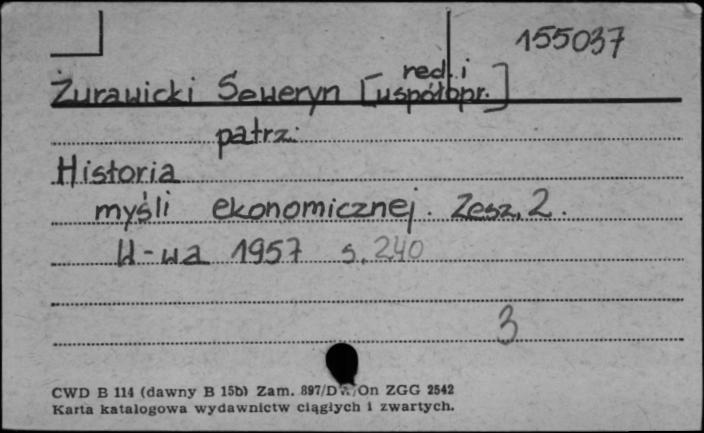 155037
Żurawicki Seweryn [red. i współopr.]
patrz:
Historia
myśli ekonomicznej. Zesz. 2.
W-wa 1957 s. 240
3
CWD B 114 (dawny B 15b) Zam. 897/ On ZGG 2542
Karta katalogowa wydawnictw ciągłych i zwartych.